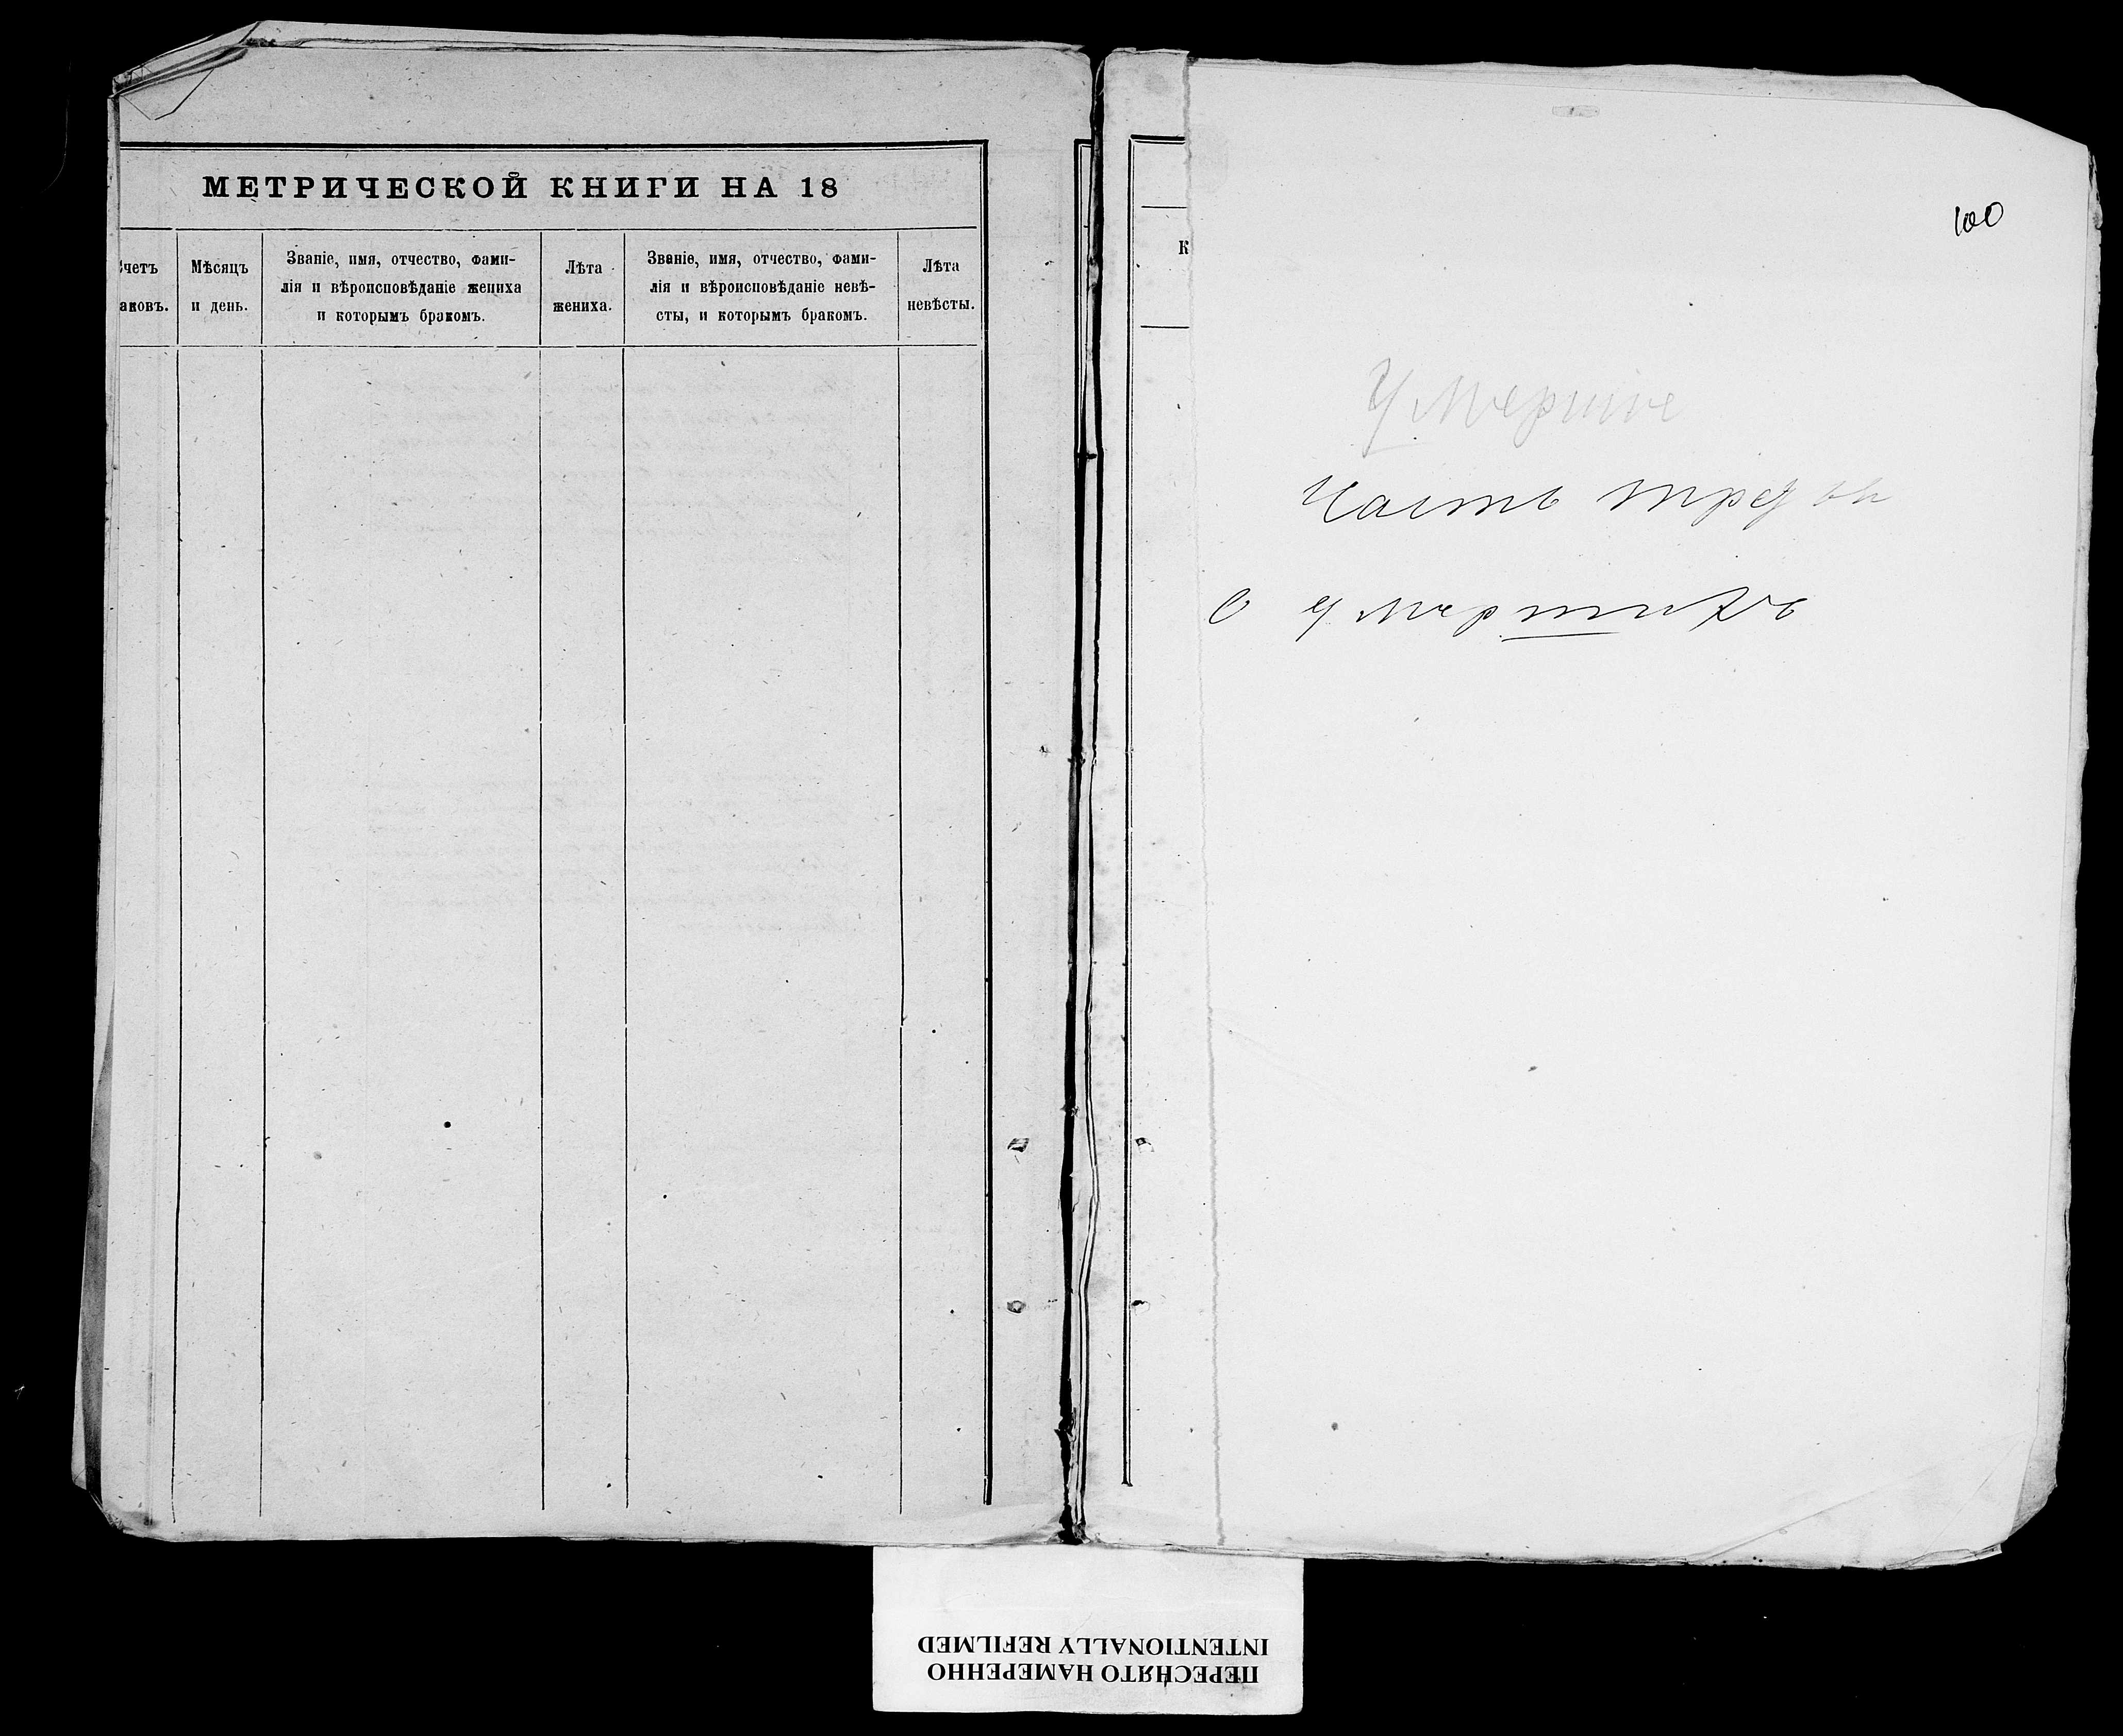 МЕТРИЧЕСКОЙ КНИГИ НА 18
счетъ
аковъ.
Мѣсяцъ
и день.
Званіе, имя, отчество, фами-
лія и вѣроисповѣданіе жениха
и которымъ бракомъ.
Лѣта
жениха.
Званіе, имя, отчество, фами-
лія и вѣроисповѣданіе невѣ-
сты, и которымъ бракомъ.
Лѣта
невѣсты.
К
100
Умершіе
Часть
о умершихъ
ПЕРЕСНЯТО НАМЕРЕННО
INTENTIONALLY REFILMED